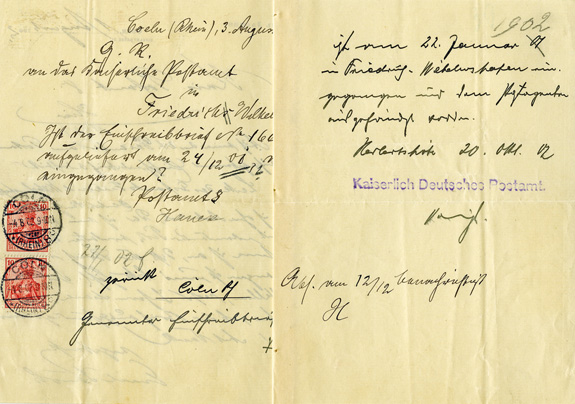 Coeln (Rhein), 3. Augus
G. R.
an das Kaiserliche Postamt
in
Friedrich-Wilhe
Ist der Einschreibbrief No 166
aufgeliefert am 24/12 01
eingegangen?
Postamt 3
27/1 02
zurück
Cöln
Genannter Einschreibbrief
1902
ist am 22. Januar
in Friedrich-Wilhelmshafen ein-
gegangen und dem Postagenten
ausgehändigt worden.
Herbertshöhe 20. Okt. 02
Kaiserlich Deutsches Postamt.
Abs. am 12/12 benachrichtigt
H